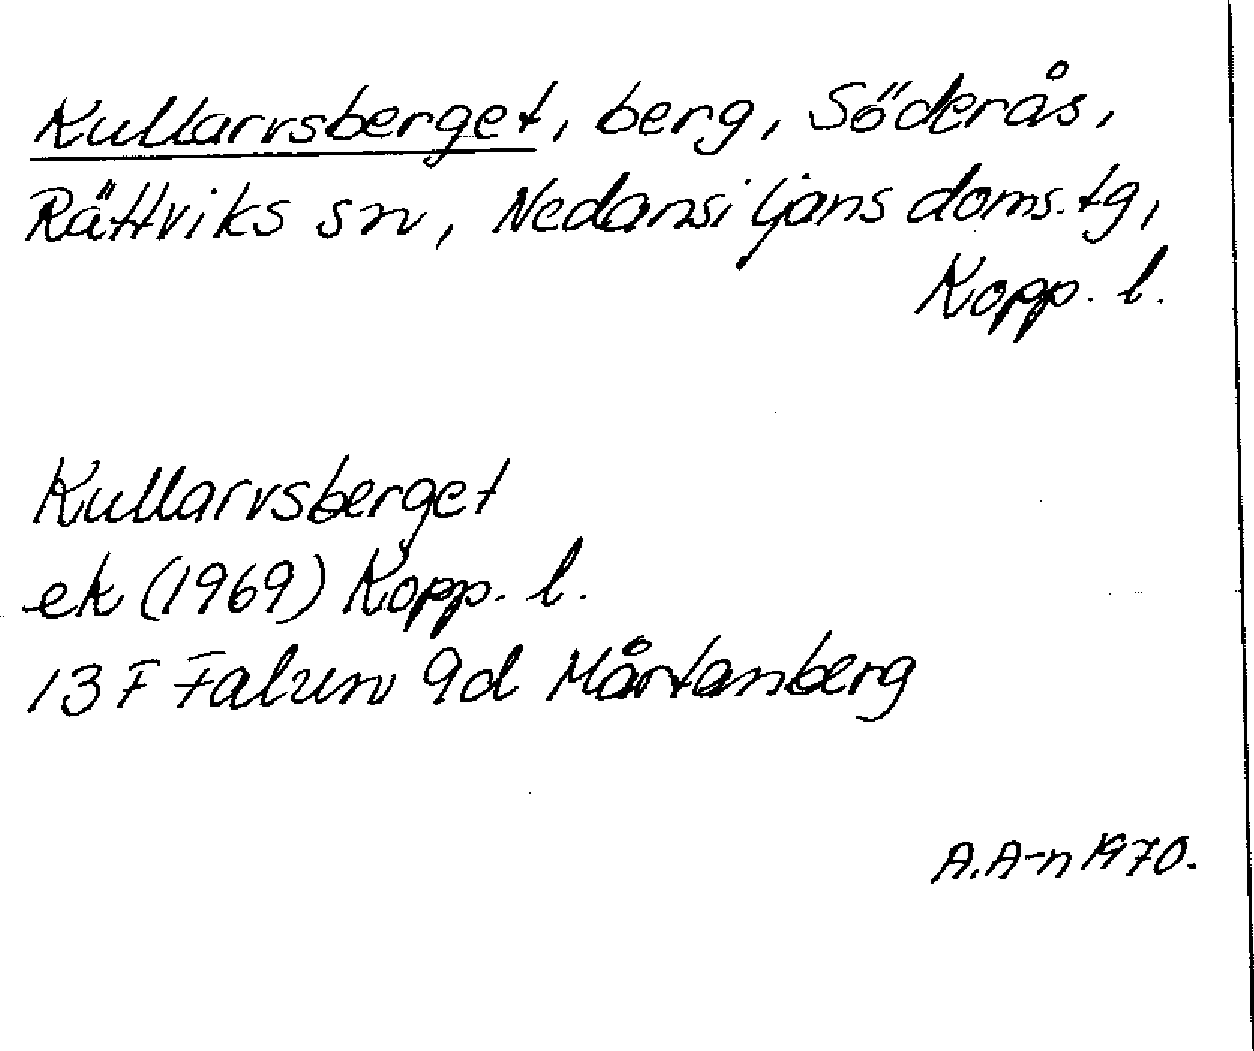 Kullarvsberget, berg, Söderås,
Rättviks sn, Nedansiljans doms. tg,
Kopp. l.
Kullarvsberget
ek (1969) Kopp. l.
13 F Falun 9d Mårtanberg
A.A-n 1970.